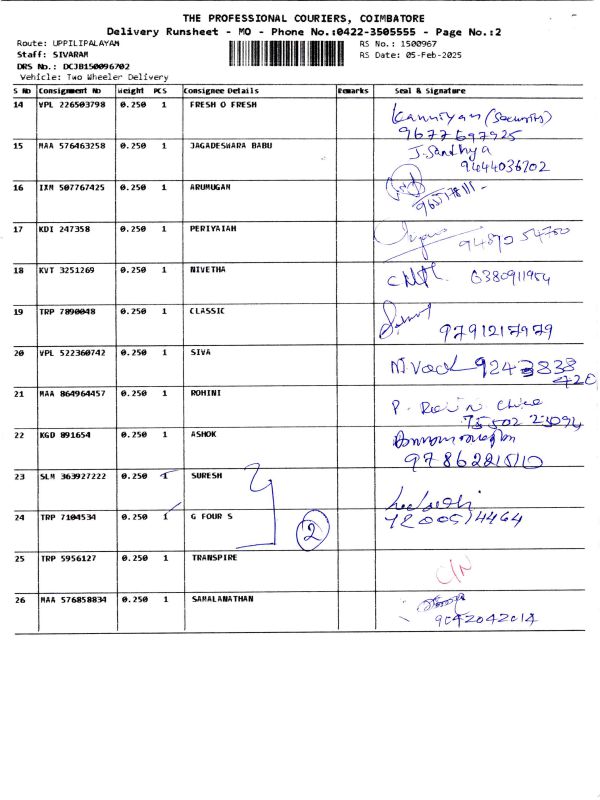 THE PROFESSIONAL COURIERS, COIMBATORE
Delivery Runsheet - MO - Phone No.:0422-3505555 - Page No.:2
Route: UPPILIPALAYAM RS No.: 1500967
Staff: SIVARAM RS Date: 05-Feb-2025
DRS No.: DCJB150096702
Vehicle: Two Wheeler Delivery
S No Consignment No Weight PCS Consignee Details Remarks Seal & Signature
14 VPL 226503798 0.250 1 FRESH O FRESH Kanniyan (Security)
9677697925
15 MAA 576463258 0.250 1 JAGADESWARA BABU J. Sandhya
9444036702
16 IXM 507767425 0.250 1 ARUMUGAM
17 KDI 247358 0.250 1 PERIYAIAH 94870 54700
18 KVT 3251269 0.250 1 NIVETHA 6380911954
19 TRP 7890048 0.250 1 CLASSIC 9791217979
20 VPL 522360742 0.250 1 SIVA 9243838
420
21 MAA 864964457 0.250 1 ROHINI P.
75502 23094
22 KGD 891654 0.250 1 ASHOK
9786221510
23 SLM 363927222 0.250 1 SURESH
24 TRP 7104534 0.250 1 G FOUR S 2 7200514464
25 TRP 5956127 0.250 1 TRANSPIRE C/N
26 MAA 576858834 0.250 1 SARALANATHAN
9042042014